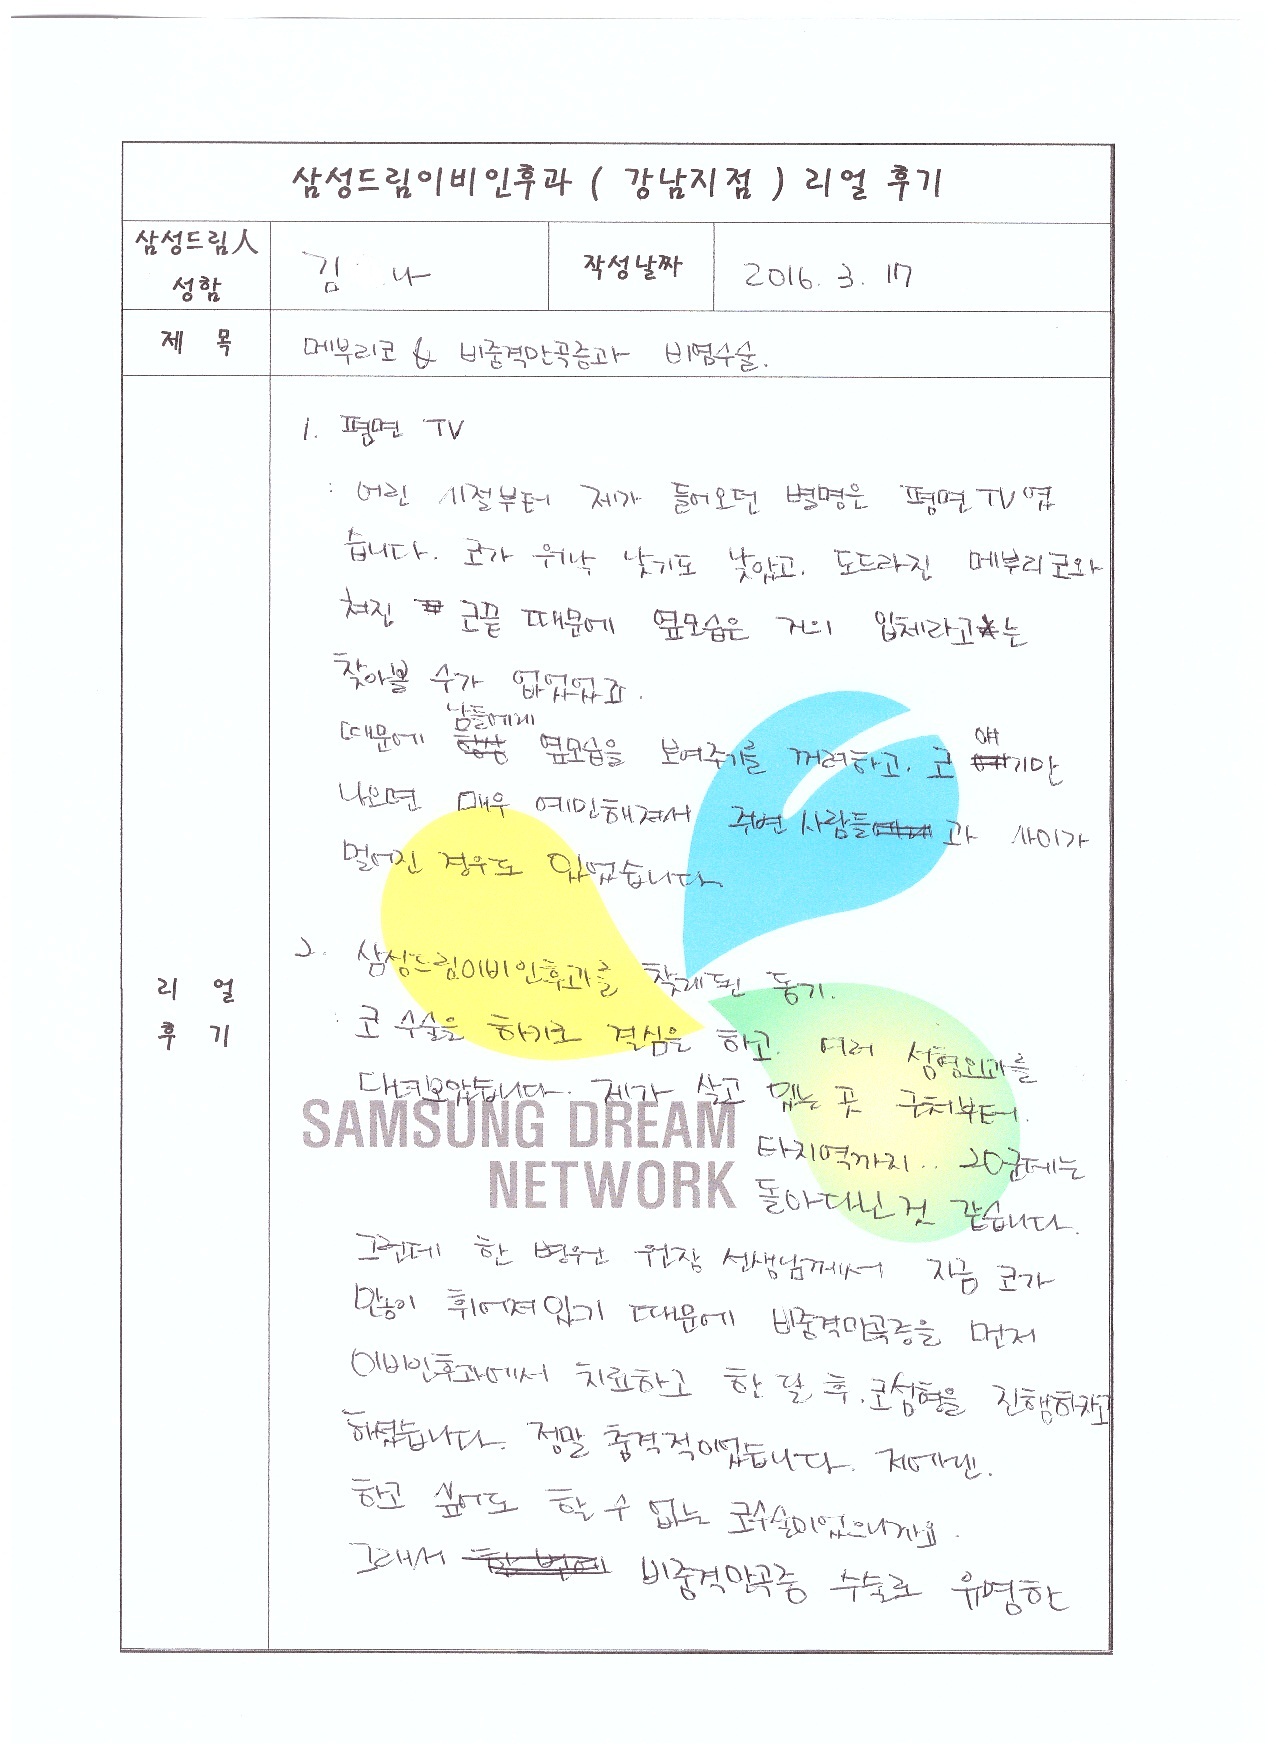 삼성드림이비인후과 ( 강남지점 ) 리얼 후기
삼성드림人
성함
김 나
작성날짜
2016. 3. 17
제 목
메부리코 & 비중격만곡증과 비염수술.
리 얼
후 기
1. 평면 TV
: 어린 시절부터 제가 들어오던 별명은 평면TV였
습니다. 코가 워낙 낮기도 낮았고, 도드라진 메부리코와
쳐진 코끝 때문에 옆모습은 거의 입체라고는
찾아볼 수가 없었었죠.
때문에 남들에게 옆모습을 보여주기를 꺼려하고, 코 얘기만
나오면 매우 예민해져서 주변 사람들과 사이가
멀어진 경우도 있었습니다.
2. 삼성드림이비인후과를 찾게된 동기.
: 코 수술을 하기로 결심을 하고 여러 성형외과를
다녀보았습니다. 제가 살고 있는 곳 근처부터.
타지역까지.. 20군데는
돌아다닌것 같습니다.
SAMSUNG DREAM
NETWORK
그런데 한 병원 원장 선생님께서 지금 코가
많이 휘어져있기 때문에 비중격만곡증을 먼저
이비인후과에서 치료하고 한 달 후, 코성형을 진행하자고
하셨습니다. 정말 충격적이었습니다. 저에겐.
하고 싶어도 할 수 없는 코수술이었으니까요.
그래서 비중격만곡증 수술로 유명한